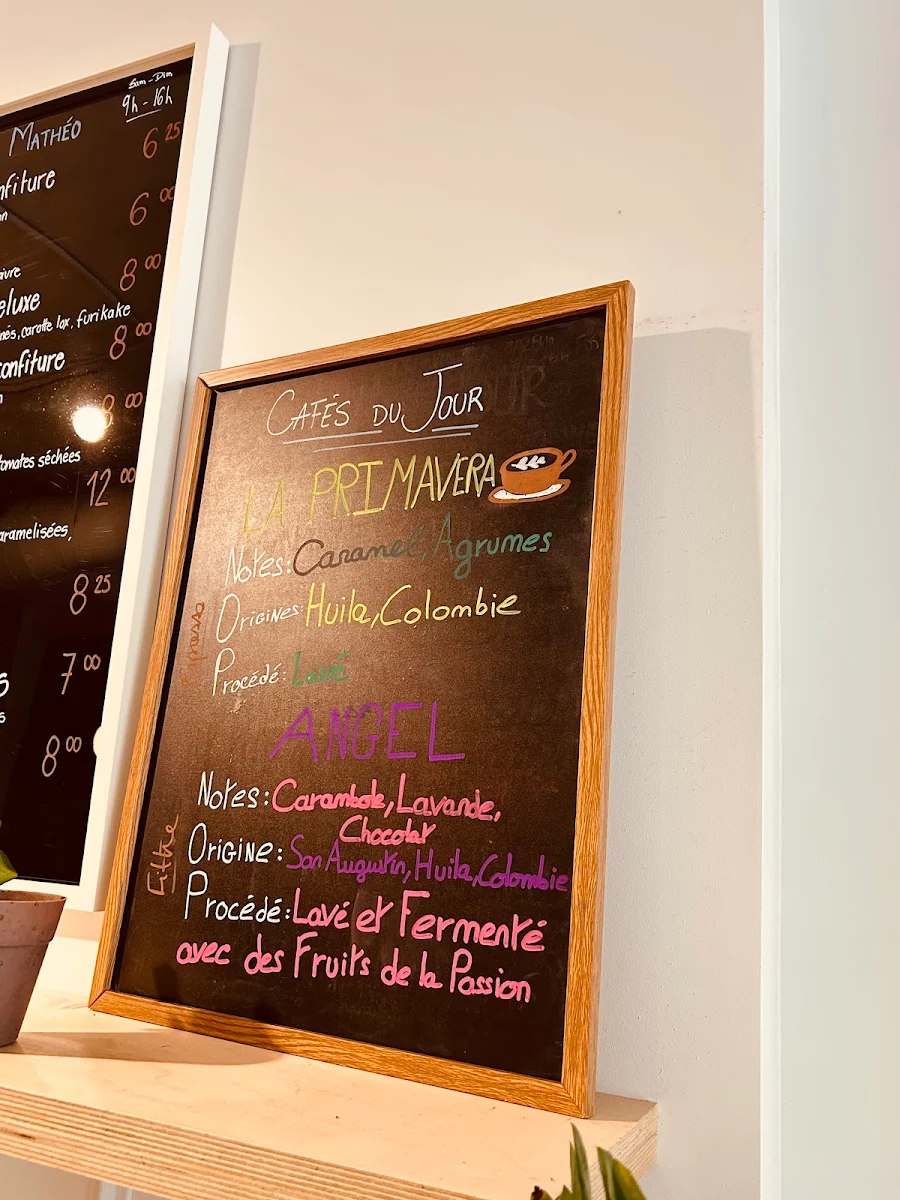 Sam - Dim
9h - 16h
MATHÉO
6 25
nfiture
6 00
8 00
eluxe
carotte lox, furikake
8 00
onfiture
8 00
tomates séchées
12 00
aramelisées,
8 25
7 00
8 00
CAFÉS DU JOUR
LA PRIMAVERA
Notes: Caramel, Agrumes
Origines: Huila, Colombie
Procédé: Lavé
ANGEL
Notes: Carambole, Lavande,
Chocolat
Filtre
Origine: San Augustin, Huila, Colombie
Procédé: Lavé et Fermenté
avec des Fruits de la Passion